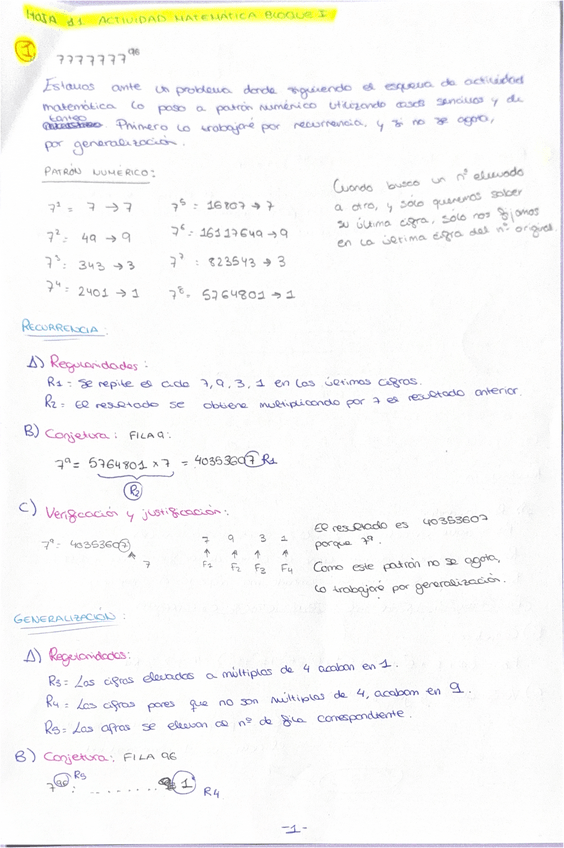 HOJA d1 ACTIVIDAD MATEMÁTICA BLOQUE I
1. 7777777⁹⁶
Estamos ante un problema donde siguiendo el esquema de actividad
matemática lo paso a patrón numérico utilizando casos sencillos y de
tanteo. Primero lo trabajaré por recurrencia, y si no se agota,
por generalización.
PATRÓN NUMÉRICO:
7¹ = 7 → 7 7⁵ = 16807 → 7
7² = 49 → 9 7⁶ = 16117649 → 9
7³ = 343 → 3 7⁷ = 823543 → 3
7⁴ = 2401 → 1 7⁸ = 5764801 → 1
Cuando busco un nº elevado
a otro, y sólo queremos saber
su última cifra, sólo nos fijamos
en la última cifra del nº original.
RECURRENCIA:
A) Regularidades:
R1 = Se repite el ciclo 7, 9, 3, 1 en las últimas cifras.
R2 = El resultado se obtiene multiplicando por 7 el resultado anterior.
B) Conjetura: FILA 9:
7⁹ = 5764801 x 7 = 40353607 R1
R2
C) Verificación y justificación:
7⁹ = 40353607
7
7 9 3 1
F1 F2 F3 F4
El resultado es 40353607
porque 7⁹.
Como este patrón no se agota,
lo trabajaré por generalización.
GENERALIZACIÓN:
A) Regularidades:
R3 = Las cifras elevadas a múltiplos de 4 acaban en 1.
R4 = Las cifras pares que no son múltiplos de 4, acaban en 9.
R5 = Las cifras se elevan al nº de fila correspondiente.
B) Conjetura: FILA 96
7⁹⁶ R5 : ........ 1 R4
-1-